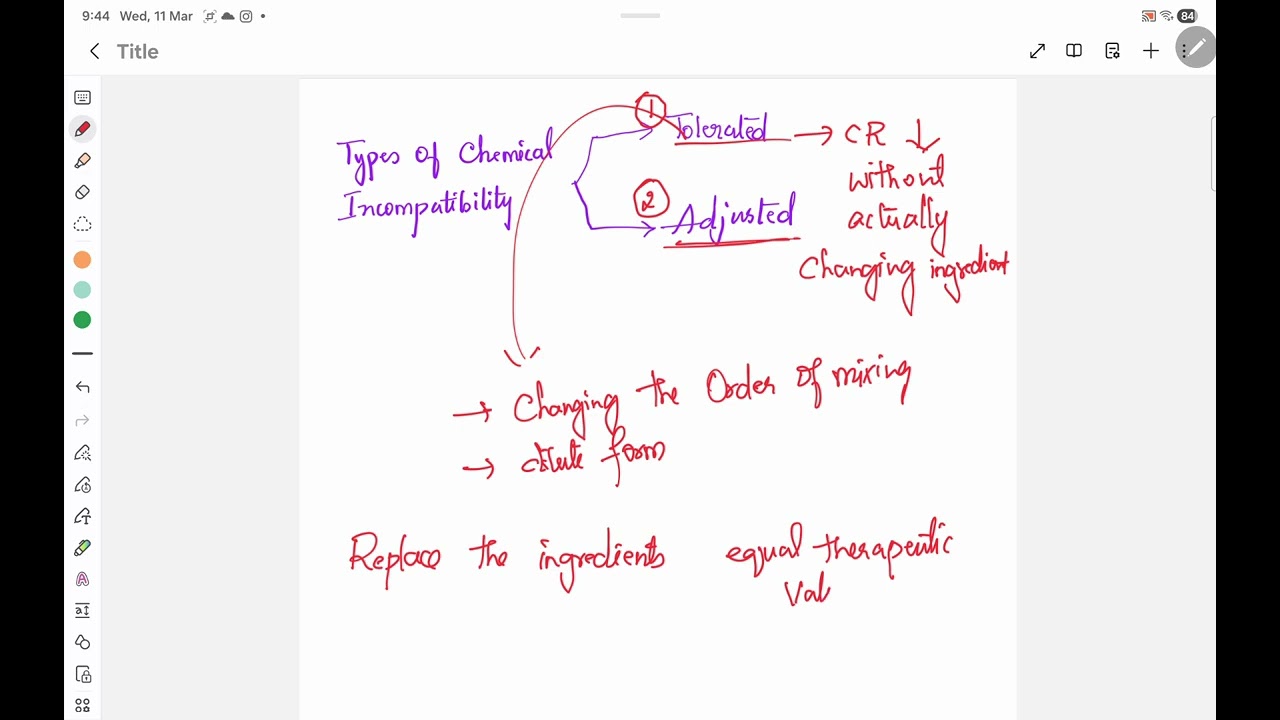 9:44 Wed, 11 Mar
84
Title
Types of Chemical
Incompatibility
1
Tolerated → CR ↓
without
actually
Changing ingredient
2
Adjusted
→ Changing the Order of mixing
→ dilute form
Replace the ingredients equal therapeutic
Val